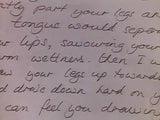 ntly part your legs a
tongue would sepera
r lips, savouring your
rm wetness. Then I w
w your legs up toward
d drive down hard on y
can feel you drawin